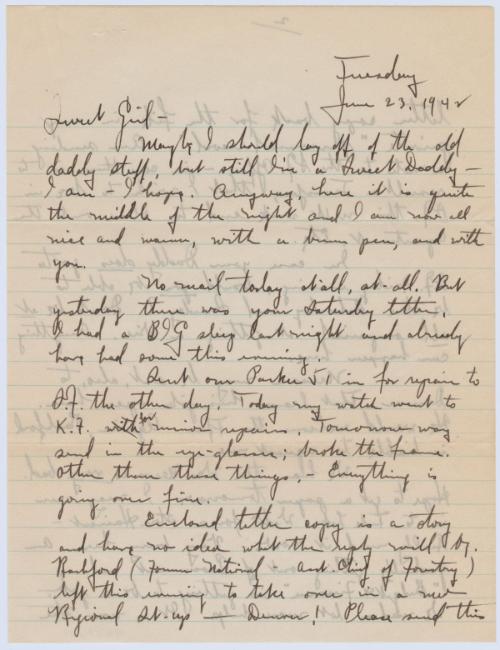 Tuesday
June 23, 1942
Sweet Girl -
Maybe I should lay off of the old
daddy stuff, but still I'm a Sweet Daddy -
I am - I hope. Anyway, here it is quite
the middle of the night and I am now all
nice and warm, with a pen, and with
you.
No mail today at all, at-all. But
yesterday there was your Saturday letter.
I had a BIG sleep last night and already
have had some this evening.
Sent our Parker 51 in for repair to
S.F. the other day. Today my watch went to
K.F. for minor repairs. Tomorrow may
send in the eye-glasses; broke the frame.
Other than these things, - Everything is
going over fine.
Enclosed letter copy is a story
and have no idea what the reply will be.
(Former National - Asst. Chief of Forestry)
left this evening to take over in a new
Regional Set-up — Denver! Please send this